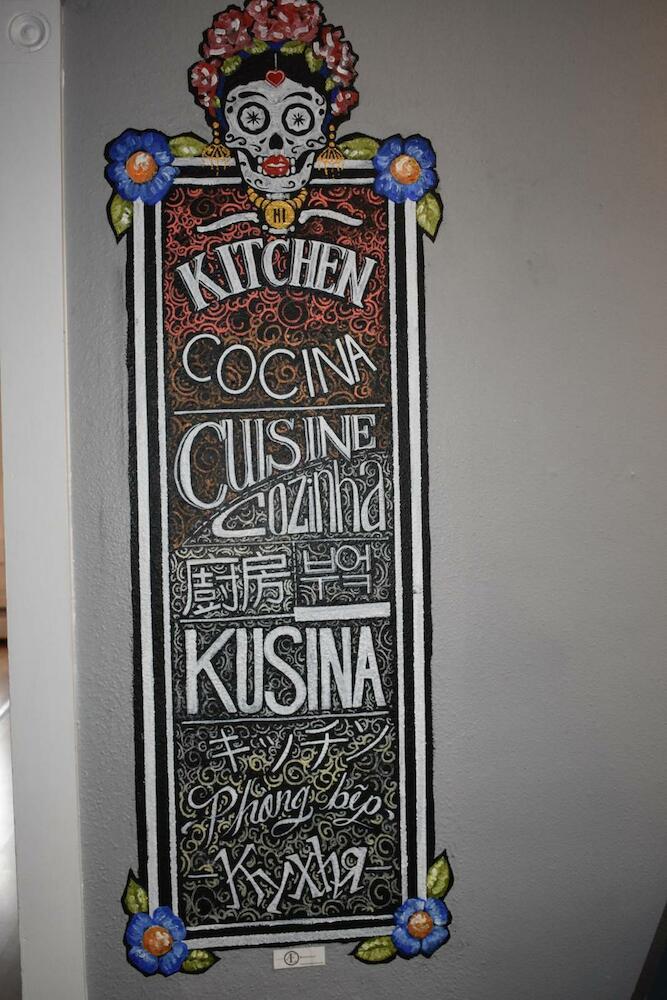 HI
KITCHEN
COCINA
CUISINE
Cozinha
廚房 부엌
KUSINA
キッチツ
Phong bẽp
Кухня